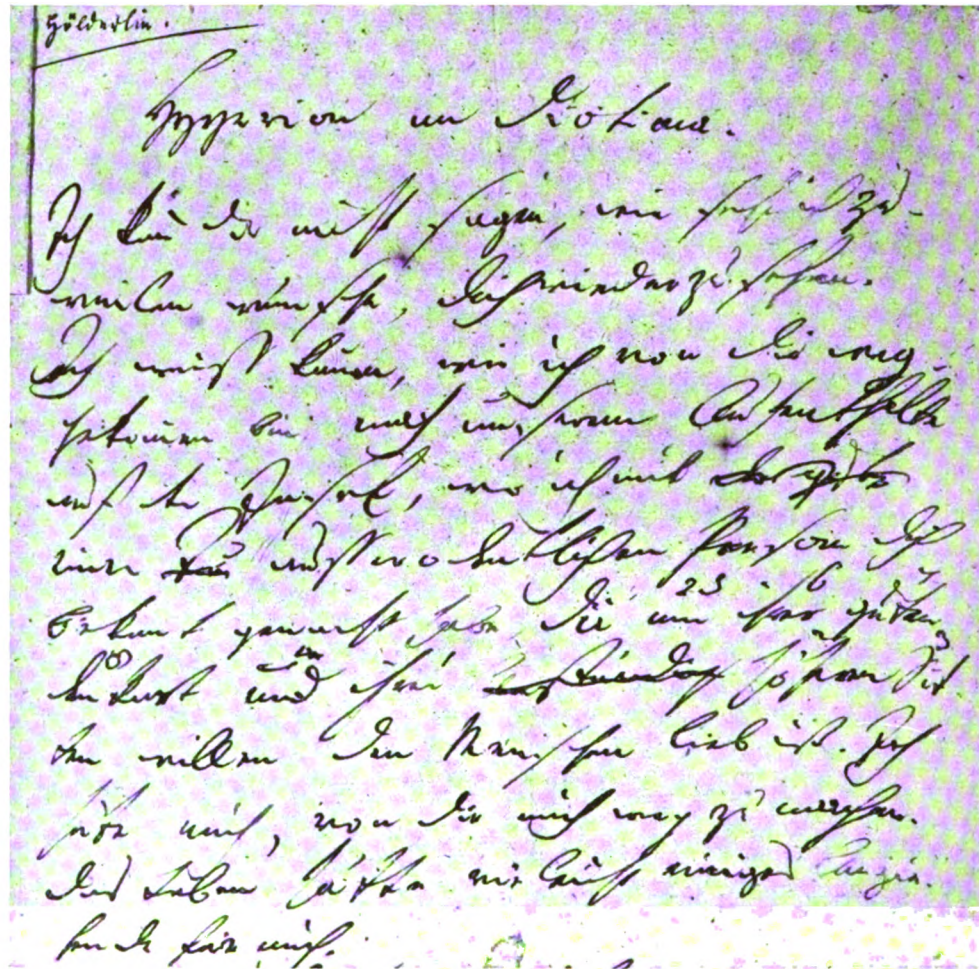 Hölderlin.
Hyperion an Diotima.
Ich kan dir nicht sagen, wie sehr ich zu-
weilen wünsche, dich wiederzusehen.
Ich weiß kaum, wie ich von dir weg
gekomen bin nach unserem Aufenthalte
auf der Insel, wo ich mit
einer außerordentlichen Person dich
bekant gemacht habe, die um ihrer guten
Denkart und ihrer höheren Sit
ten willen den Menschen lieb ist. Ich
hüte mich, von dir mich weg zu machen.
das Leben hätte vieleicht einiges anzie-
hende für mich.